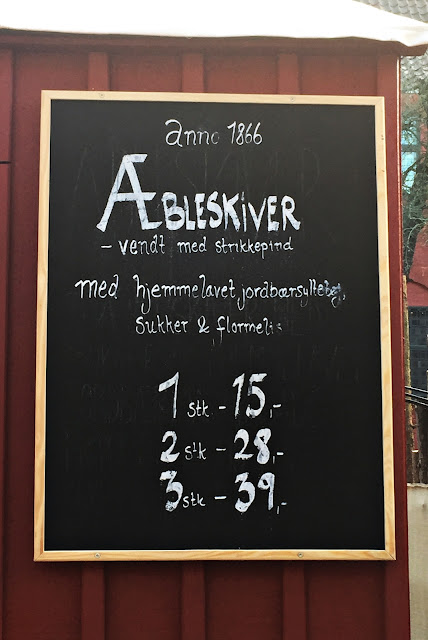 anno 1866
ÆBLESKIVER
- vendt med strikkepind
med hjemmelavet jordbærsyltetøj,
Sukker & flormelis
1 stk - 15,-
2 stk - 28,-
3 stk - 39,-